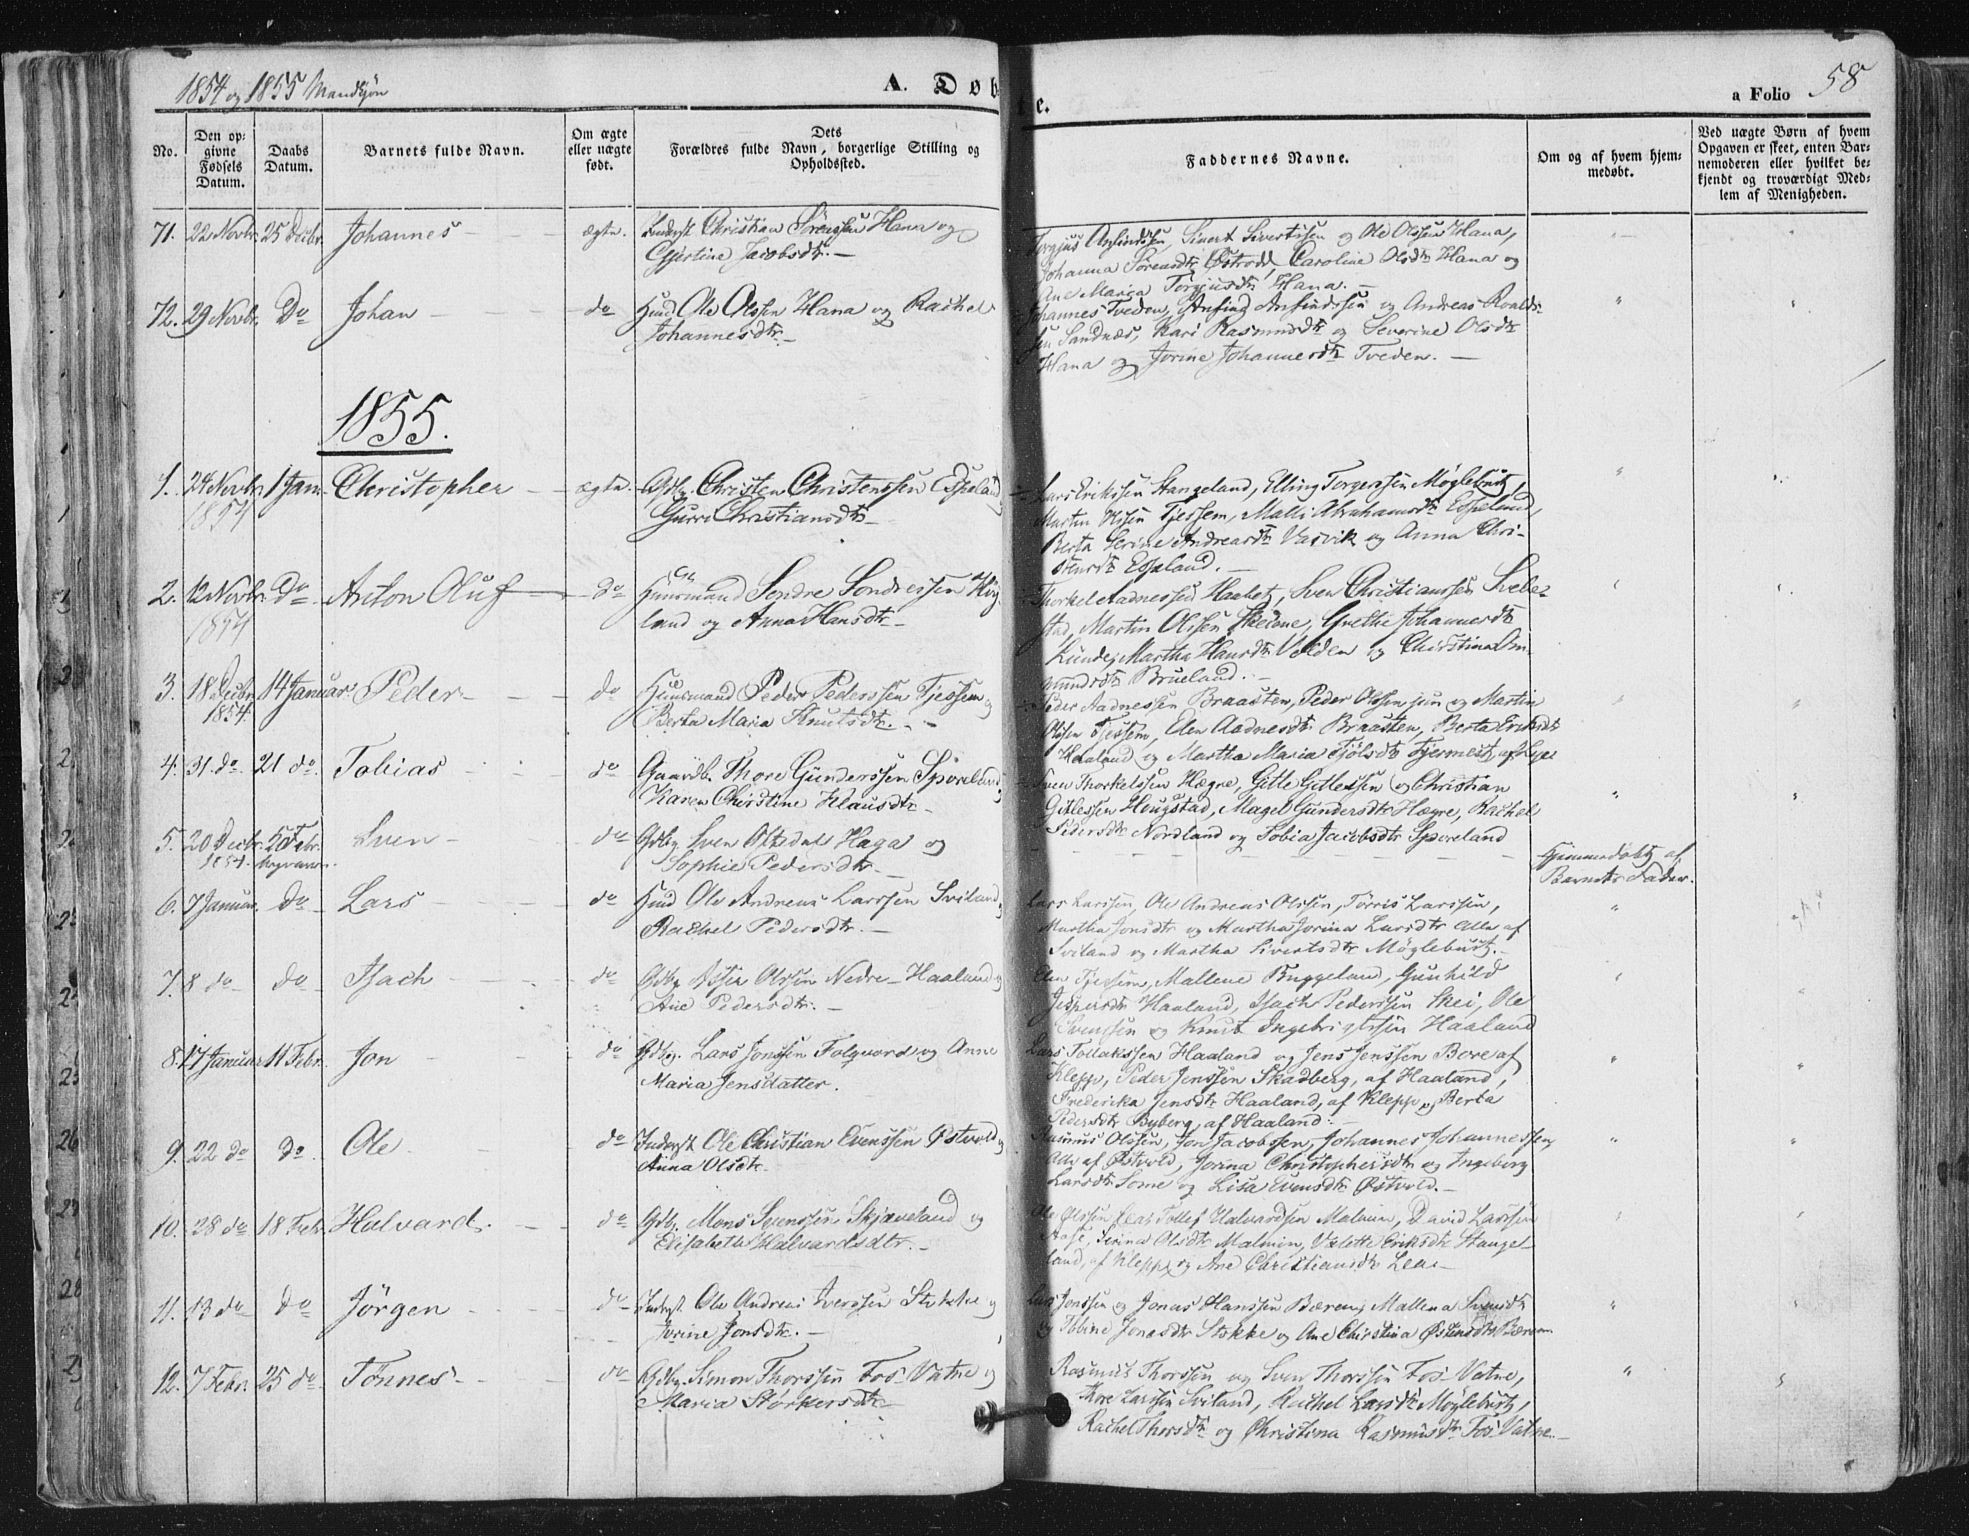 1854 og 1855 Mandkjøn
A. Døbte.
a Folio 58
No.
Den opgivne Fødsels Datum.
Daabs Datum.
Barnets fulde Navn.
Om ægte eller uægte født.
Dets Forældres fulde Navn, borgerlige Stilling og Opholdssted.
Faddernes Navne.
Om og af hvem hjemmedøbt.
Ved uægte Børn af hvem Opgaven er skeet, enten Barnemoderen eller hvilket bekjendt og troværdigt Medlem af Menigheden.
71. 22 Novbr. 25 Decbr. Johannes ægte. Inderst Christian Sørenssen Hana og
Jacobsdtr.
Sivert Sivertssen og Ole Olssen Hana,
Johanna Sørensdtr Østraad, Caroline Olsdtr Hana og
Ane Maria Torgiusdtr Hana.
72. 29 Novbr. Do Johan do Huusmd Ole Olssen Hana og Rachel
Johannesdtr.
Johannes Tveden, Anfind Anfindssen og Andreas Roalds-
sen Sandnæs, Kari Rasmusdtr og Severine Olsdtr
Hana og Jorine Johannesdtr Tveden.
1855.
1. 24 Novbr. 1 Jan. Christopher ægte. Gdbr. Christen Christenssen Espeland
1854 Gurri Christiansdtr
Lars Erikssen Stangeland, Elling Torgerssen Møglebust,
Martin Tjessem, Malli Abrahamsdtr Espeland,
Berta Serine Andreasdtr Vasvik og Anna Chri-
stensdtr Espeland.
2. 12 Novbr. do Anton Oluf do Huusmand Sondre Sondressen Høy-
1854 land og Anna Hansdtr.
Thorkel Aadnessen Haabet, Sven Christianssen Svile-
stad, Martin Olssen Skeione, Grethe Johannesdtr
Lunde, Martha Hansdtr Volden og Christina Om-
mundsdtr Brueland.
3. 18 Decbr. 14 Januar. Peder do Huusmand Peder Pederssen Tjessem og
1854. Berta Maria Knutsdtr.
Peder Aadnessen Braasten, Peder Olssen jun og Martin
Olssen Tjessem, Elen Aadnesdtr Braasten, Berta Eriksdtr
Haaland og Martha Maria
4. 31. do. 21 do. Tobias do Gaardbr. Thore Gunderssen Sporeland
Karen Christine Klausdtr.
Sven Thorkelssen Hægre, Gitle Gitlessen og Christian
Gitlessen Hougstad, Magel Gundersdtr Hægre, Rachel
Pedersdtr Nordland og Tobia Jacobsdtr Sporeland
5. 20 Decbr. 5 Febr. Sven do Gdbr. Sven Haga og
1854. Sophie Pedersdtr.
Hjemmedøbt af
Barnets Fader.
6. 7 Januar. do Lars do Huusmd Ole Andreas Larssen Sviland
Rachel Pedersdtr.
Lars Larssen, Ole Andreas Olssen, Tørris Larssen,
Martha Jonsdtr og Martha Jorina Larsdtr Alle af
Sviland og Martha Sivertsdtr Møglebust.
7. 8 do do Isach do Gdbr. Olssen Nedre-Haaland og
Ane Pedersdtr.
Elen Tjessem, Mallene Byggeland, Gunhild
Jespersdtr Haaland, Isach Pederssen Skei, Ole
Svenssen og Knut Ingebrigtssen Haaland
8. 17 Januar 11 Febr. Jon do Gdbr. Lars Jonssen Folqvord og Anne
Maria Jensdatter.
Lars Tollakssen Haaland og Jens Jenssen Bore af
Klepp, Peder Jenssen Skadberg, af Haaland,
Frederika Jensdtr Haaland, af Klepp og Berta
Pedersdtr Byberg, af Haaland.
9. 22 do do. Ole do Inderst Ole Christian Evenssen Østvold
Anna Olsdtr
Rasmus Olssen, Jon Jacobssen, Johannes Johannessen,
Alle af Østvold, Jorina Christophersdtr og Ingeborg
Larsdtr Some og Lisa Evensdtr Østvold.
10. 28 do 18 Febr. Halvard. do Gdbr. Mons Svenssen Skjæveland og
Elisabeth Halvardsdtr.
Ole Olssen Leas, Tollef Halvardsen Malmin, David Larssen
Aase, Sirina Olsdtr Malmin, Valette Eriksdtr Stange-
land, af Klepp og Ane Christiansdtr Lea
11. 13 do do Jörgen do Inderst Ole Andreas Iverssen Stokke og
Jorine Jonsdtr.
Lars Jonssen og Jonas Hanssen Bærem, Mallena Svensdtr
og Obbine Jonasdtr Stokke og Ane Christina Østensdtr Bærem
12. 7 Febr. 25 do Tönnes do Gdbr. Simon Thorssen Fos-Vatne og
Maria Størkersdtr
Rasmus Thorssen og Sven Thorssen Fos-Vatne,
Thore Larssen Sviland, Rachel Larsdtr Møglebust,
Rachel Thorsdtr og Christina Rasmusdtr Fos-Vatne.